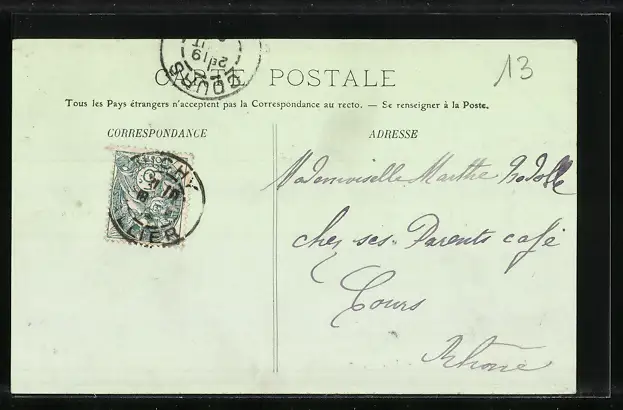 CARTE POSTALE
13
Tous les Pays étrangers n'acceptent pas la Correspondance au recto. — Se renseigner à la Poste.
CORRESPONDANCE
ADRESSE
Mademoiselle Marthe
chez ses Parents café
Cours
Rhône
VICHY
ALLIER
COURS